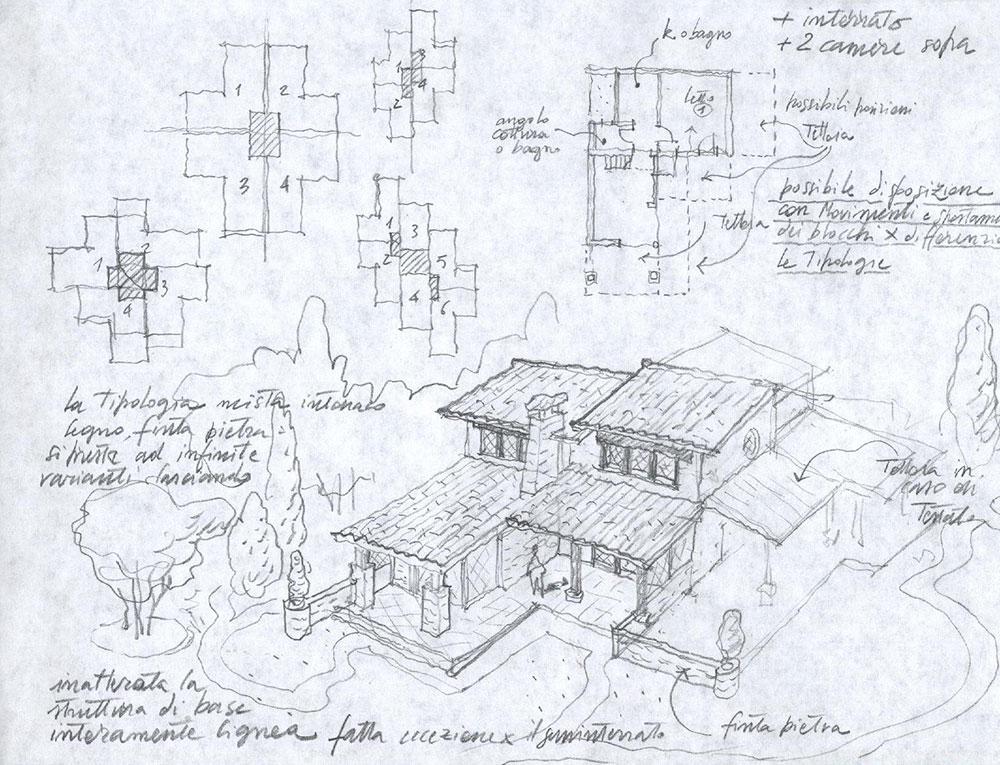 + interrato
+ 2 camere sopra
k. o bagno
letto
1
possibili posizioni
Tettoia
angolo
cottura
o bagno
possibile disposizione
con Movimenti e spostame
dei blocchi x differenzia
le Tipologie
Tettoia
1 2
3 4
1 3
2 4
1 2
3
4
1 3
2 5
4 6
la Tipologia mista intonaco
legno, finta pietra
si presta ad infinite
varianti lasciando
Tettoia in
caso di
inalterata la
struttura di base
interamente lignea fatta eccezione x il seminterrato
finta pietra